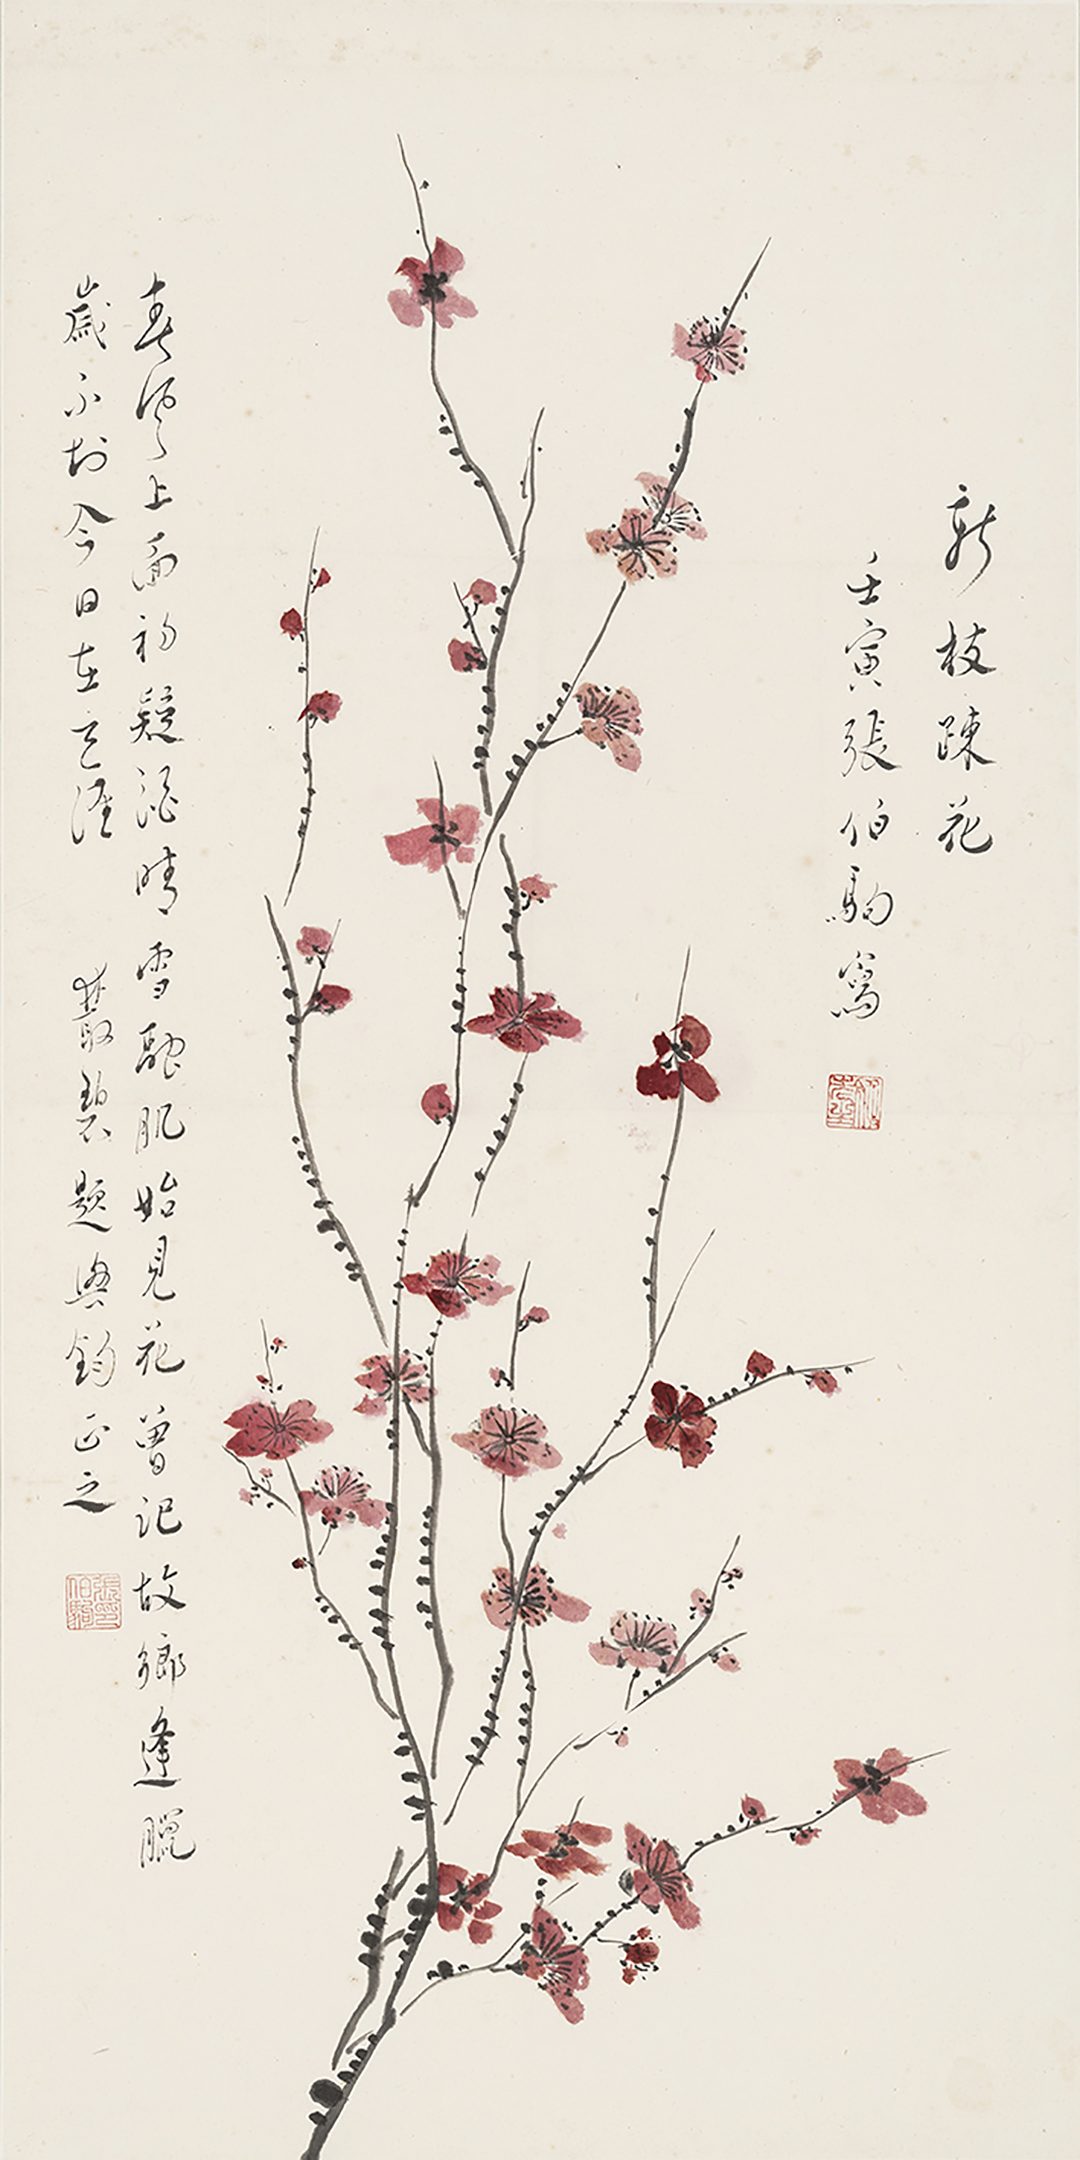 新枝踈花
壬寅張伯駒寫
春風上面初疑酒晴雪融肌始見花曾記故鄉逢臘
歲不扵今日在天涯 叢碧題與鈞正之
張印伯駒